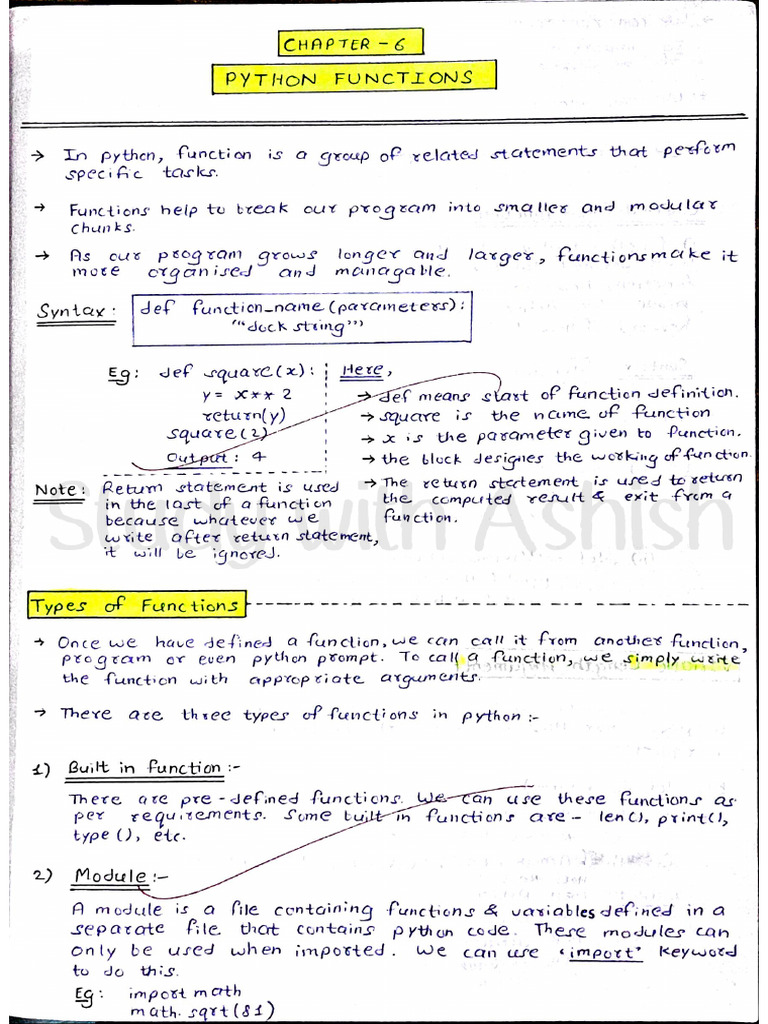 CHAPTER - 6
PYTHON FUNCTIONS
→ In python, function is a group of related statements that perform
specific tasks.
→ Functions help to break our program into smaller and modular
chunks.
→ As our program grows longer and larger, functions make it
more organised and managable.
Syntax: def function_name (parameters):
"“dock string”"
Eg: def square(x):
y = x** 2
return(y)
square(2)
Output: 4
Here,
→ def means start of function definition.
→ square is the name of function
→ x is the parameter given to function.
→ the block designes the working of function.
→ The return statement is used to return
the computed result & exit from a
function.
Note: Return statement is used
in the last of a function
because whatever we
write after return statement,
it will be ignored.
Study with Ashish
Types of Functions
→ Once we have defined a function, we can call it from another function,
program or even python prompt. To call a function, we simply write
the function with appropriate arguments.
→ There are three types of functions in python :-
1) Built in function :-
There are pre-defined functions. We can use these functions as
per requirements. Some built in functions are - len(), print(),
type (), etc.
2) Module :-
A module is a file containing functions & variables defined in a
separate file that contains python code. These modules can
only be used when imported. We can use 'import' keyword
to do this.
Eg: import math
math. sqrt (81)